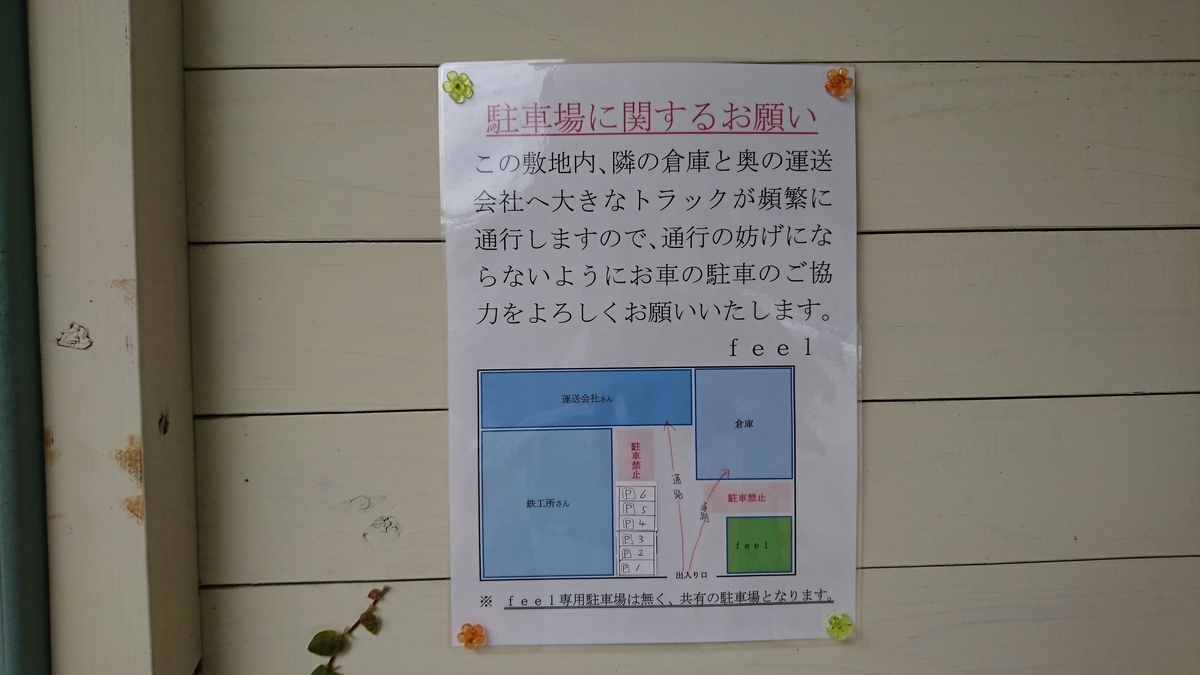 駐車場に関するお願い
この敷地内、隣の倉庫と奥の運送
会社へ大きなトラックが頻繁に
通行しますので、通行の妨げにな
らないようにお車の駐車のご協
力をよろしくお願いいたします。
ｆｅｅｌ
運送会社さん
倉庫
駐車禁止
鉄工所さん
通路
通路
駐車禁止
P 6
P 5
P 4
P 3
P 2
P 1
ｆｅｅｌ
出入り口
※ ｆｅｅｌ専用駐車場は無く、共有の駐車場となります。